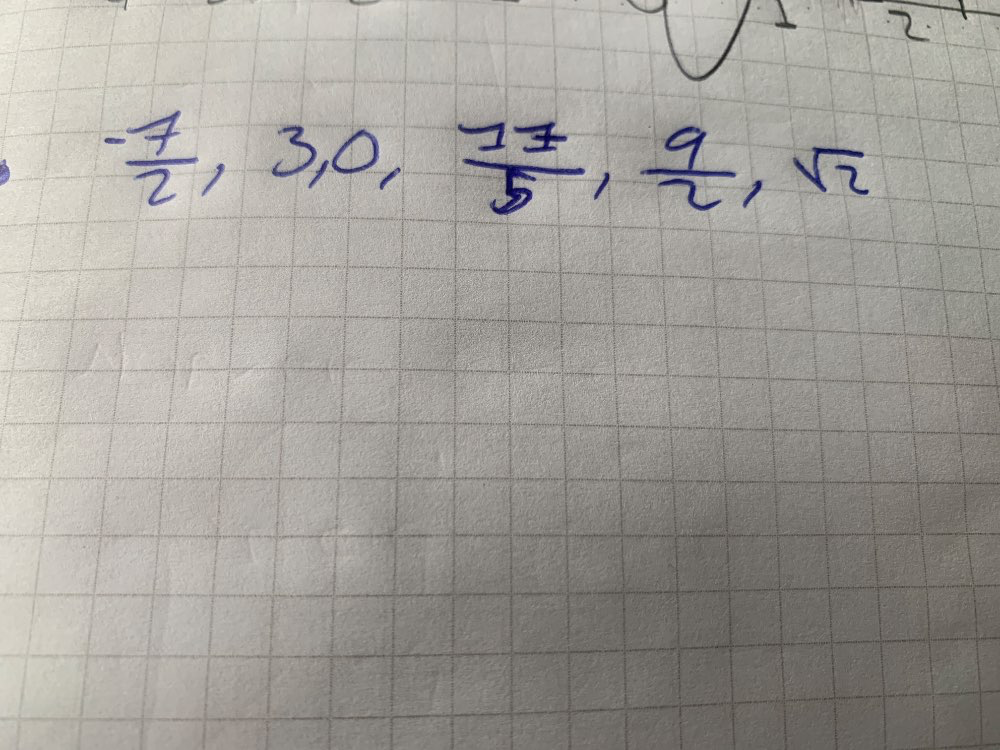 -7/2, 3,0, 17/5, 9/2, √2